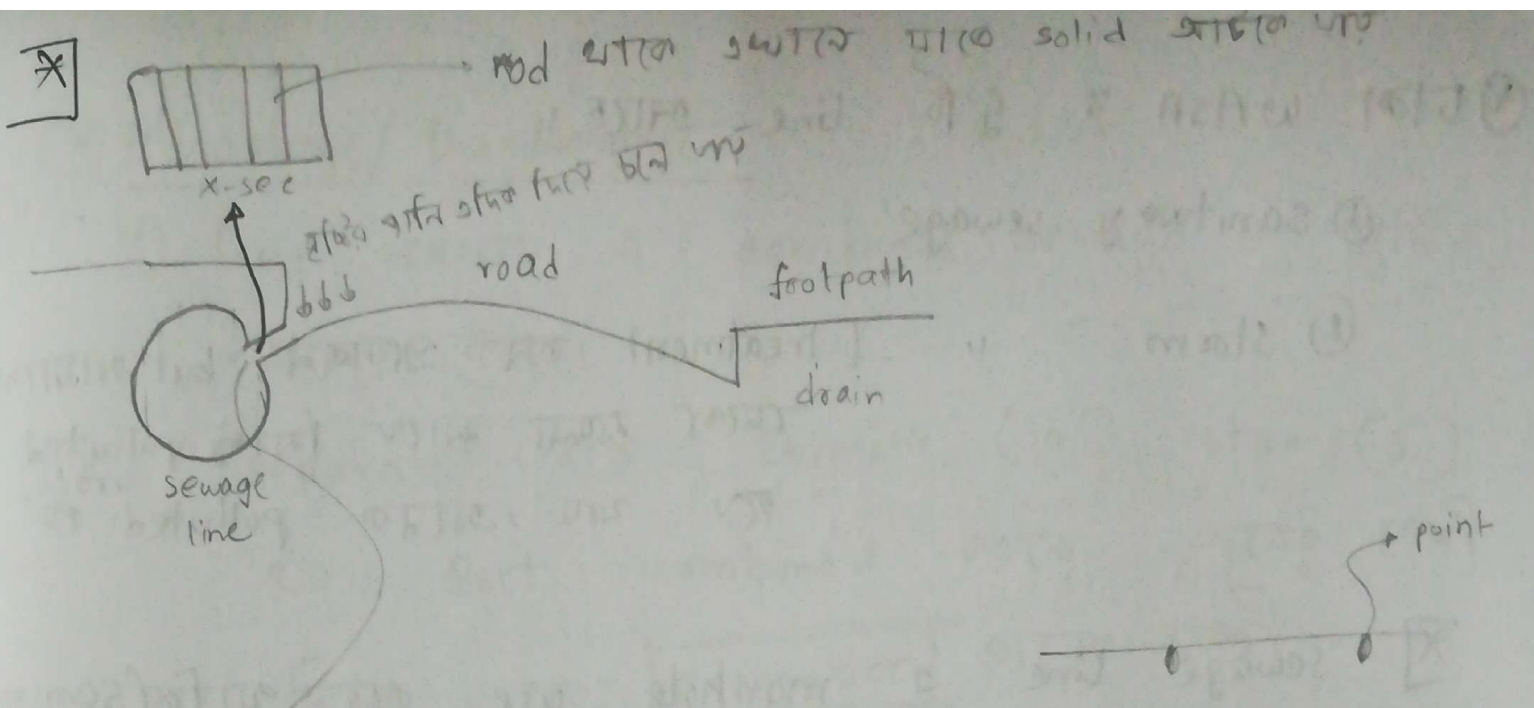 rod থাকে এখানে যাতে solid আটকে যায়
x-sec
বৃষ্টির পানি এদিক দিয়ে চলে যায়
road
footpath
drain
sewage
line
point